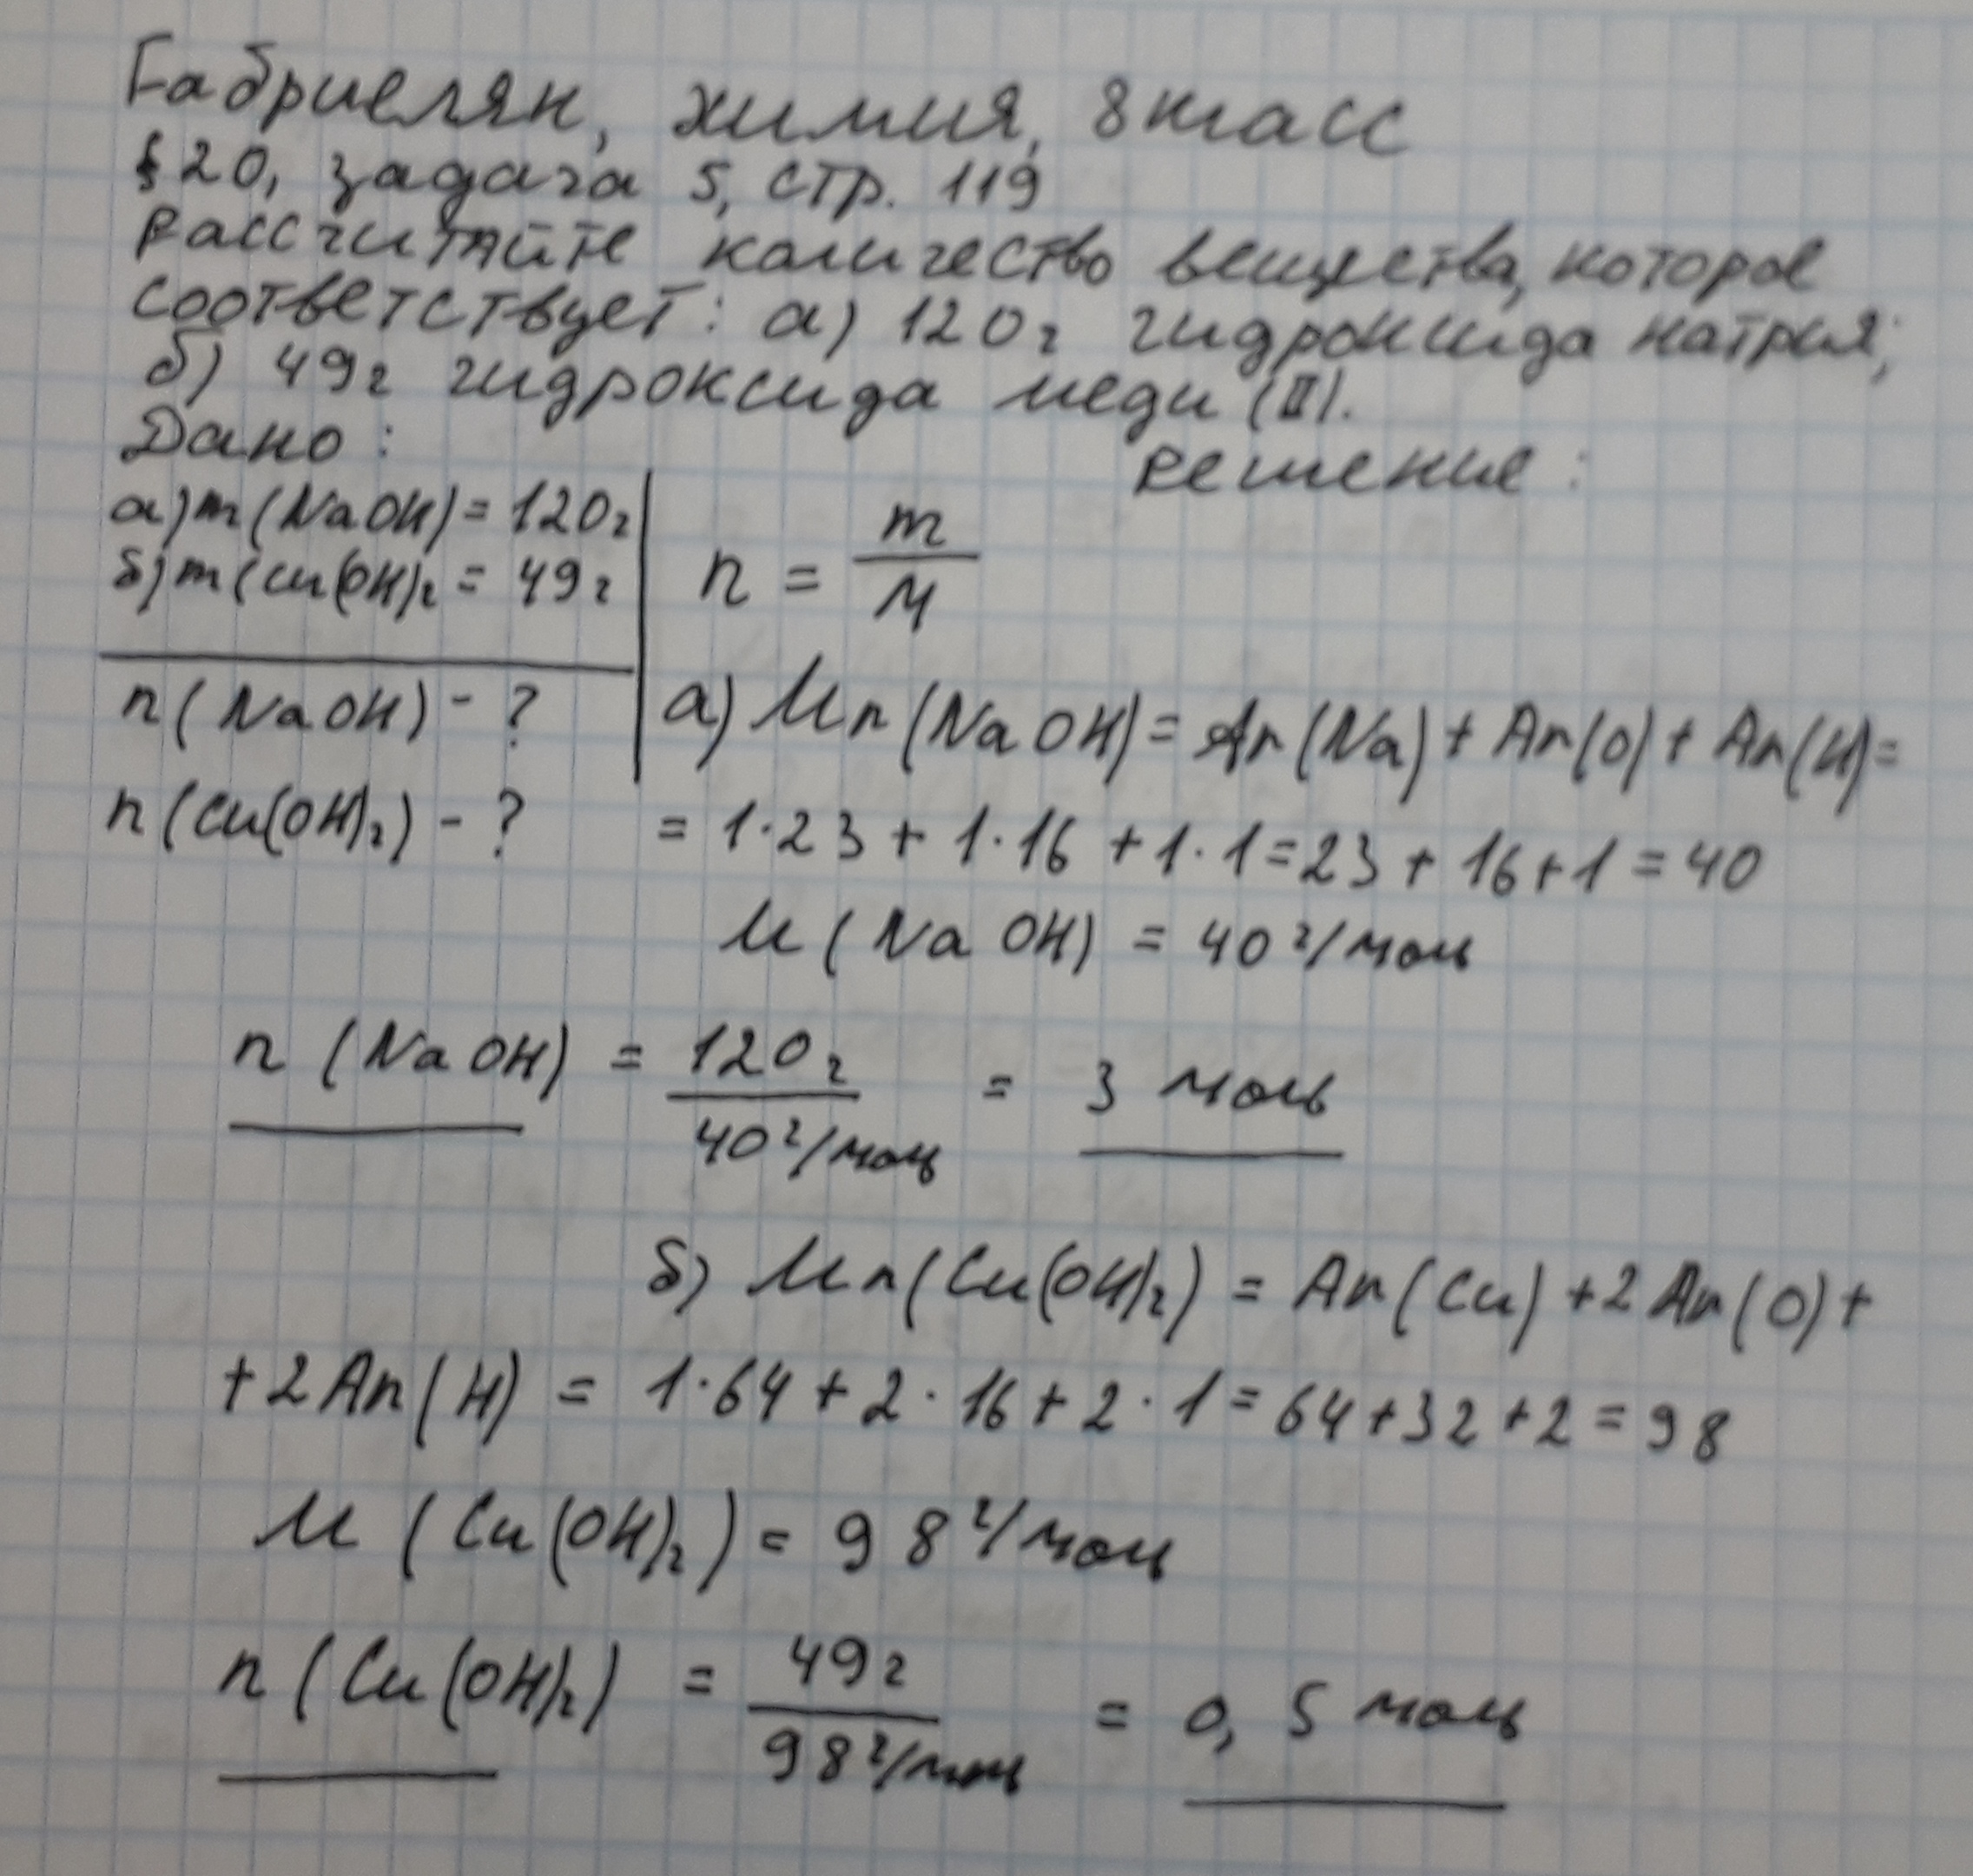 Габриелян, химия, 8 класс
§ 20, задача 5, стр. 119
Рассчитайте количество вещества, которое
соответствует: а) 120 г гидроксида натрия;
б) 49 г гидроксида меди (II).
Дано:
Решение:
а) m (NaOH) = 120 г
б) m (Cu(OH)₂ = 49 г
n = m / M
n (NaOH) - ?
n (Cu(OH)₂) - ?
а) Mr (NaOH) = Ar (Na) + Ar (O) + Ar (H) =
= 1·23 + 1·16 + 1·1 = 23 + 16 + 1 = 40
M (NaOH) = 40 г/моль
n (NaOH) = 120 г / 40 г/моль = 3 моль
б) Mr (Cu(OH)₂) = Ar (Cu) + 2 Ar (O) +
+ 2 Ar (H) = 1·64 + 2·16 + 2·1 = 64 + 32 + 2 = 98
M (Cu(OH)₂) = 98 г/моль
n (Cu(OH)₂) = 49 г / 98 г/моль = 0,5 моль